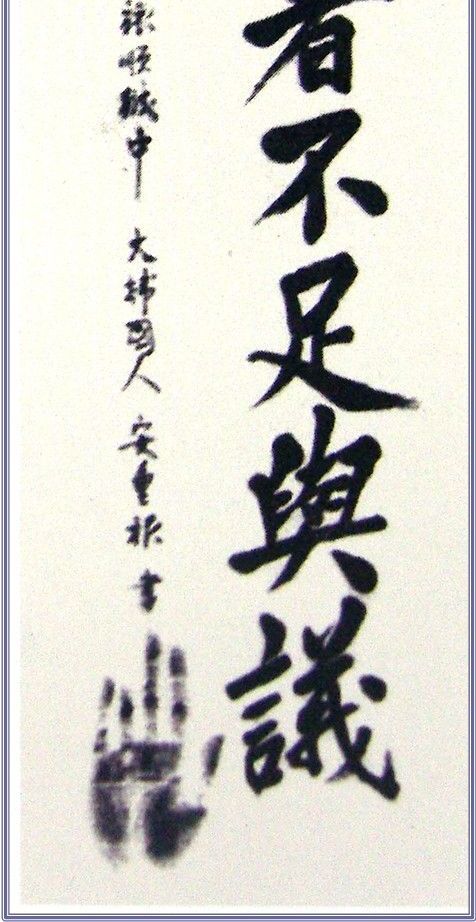 者不足與議
旅順獄中 大韓國人 安重根 書